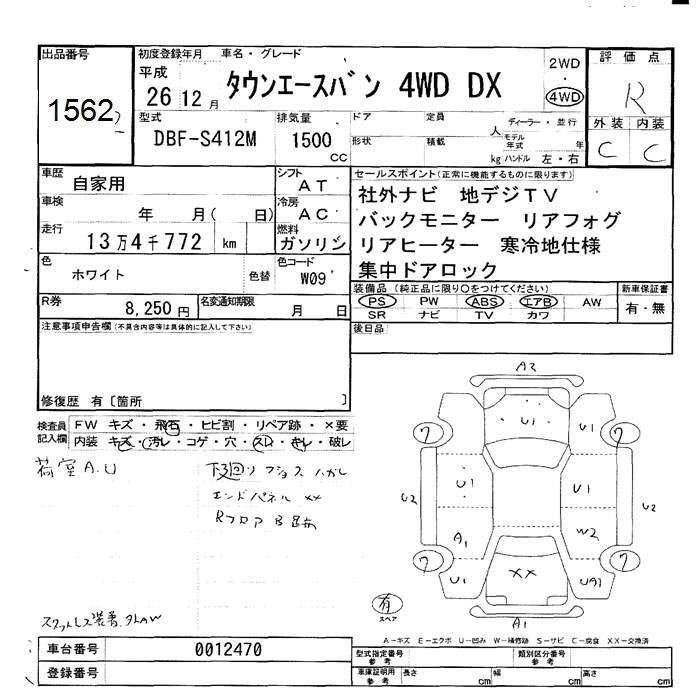 出品番号
1562
初度登録年月
車名・グレード
平成
26 12 月
タウンエースバン 4WD DX
2WD
・
4WD
評価点
R
外装 内装
C C
型式
DBF-S412M
排気量
1500
CC
ドア
定員
人
形状
積載
kg
ディーラー・並行
モデル年式 年
ハンドル 左・右
車歴
自家用
シフト
AT
車検
年 月( 日)
冷房
AC
走行
13万4千772 km
燃料
ガソリン
色
ホワイト
色替
色コード
W09
R券
8,250 円
名変通知期限
月 日
セールスポイント(正常に機能するものに限ります)
社外ナビ 地デジTV
バックモニター リアフォグ
リアヒーター 寒冷地仕様
集中ドアロック
装備品 (純正品に限り○をつけてください)
PS PW ABS エアB AW
SR ナビ TV カワ
新車保証書
有・無
後日品
注意事項申告欄(不具合内容等は具体的に記入して下さい)
修復歴 有〔箇所 〕
検査員記入欄
FW キズ・飛石・ヒビ割・リペア跡・×要
内装 キズ・汚レ・コゲ・穴・スレ・キレ・破レ
荷室A.U
下廻りフジョスハガレ
エンドパネル ××
RフロアB跡
A2
U1
7
7
U1
U1
U2
U2
A1
W2
7
7
U1
××
UA1
A1
有
スペア
A-キズ E-エクボ U-凹み W-補修跡 S-サビ C-腐食 XX-交換済
車台番号
0012470
登録番号
型式指定番号
参考
類別区分番号
参考
車庫証明用
参考
長さ cm 幅 cm 高さ cm